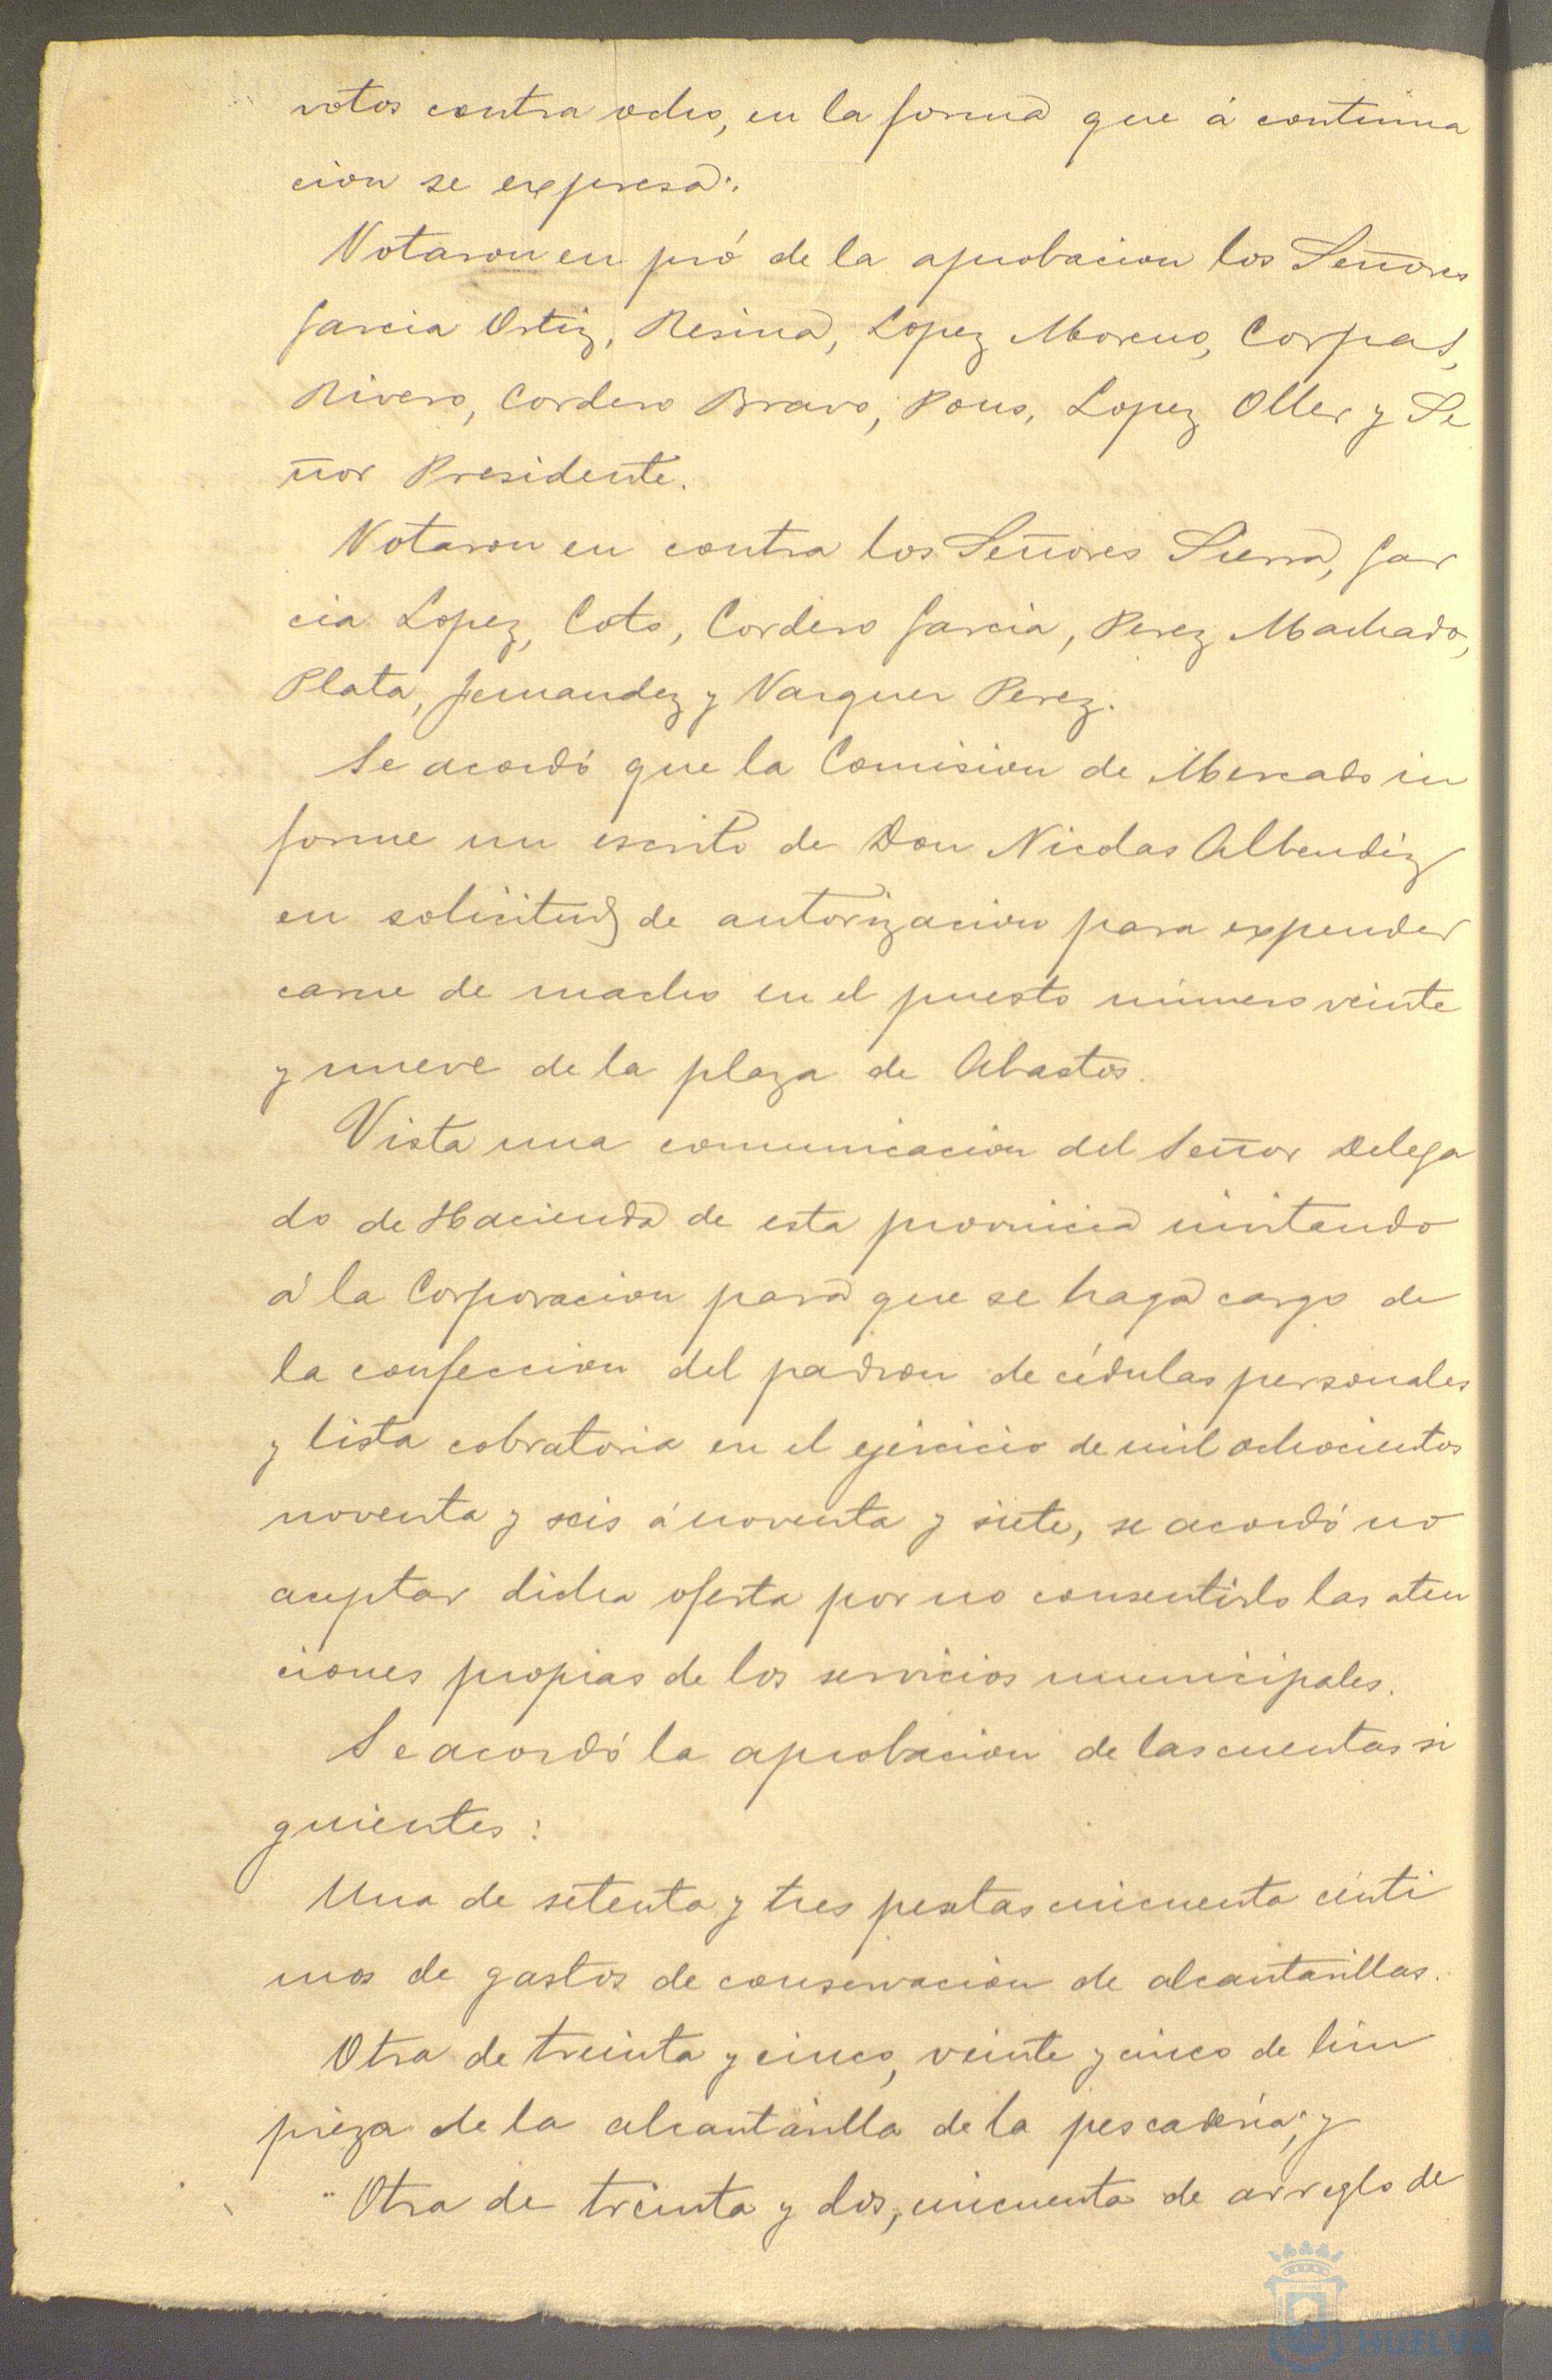 votos contra ocho, en la forma que á continua
cion se expresa:
Votaron en pró de la aprobacion los Señores
Garcia Ortiz, Resina, Lopez Moreno, Corpas,
Rivero, Cordero Bravo, Pons, Lopez Oller y Se
ñor Presidente.
Votaron en contra los Señores Sierra, Gar
cia Lopez, Coto, Cordero Garcia, Perez Machado,
Plata, Fernandez y Vazquez Perez.
Se acordó que la Comision de Mercado in
forme un escrito de Don Nicolas Albendiz
en solicitud de autorizacion para expender
carne de macho en el puesto número veinte
y nueve de la plaza de Abastos.
Vista una comunicacion del Señor Delega
do de Hacienda de esta provincia invitando
á la Corporacion para que se haga cargo de
la confeccion del padron de cédulas personales
y lista cobratoria en el ejercicio de mil ochocientos
noventa y seis á noventa y siete, se acordó no
aceptar dicha oferta por no consentirlo las aten
ciones propias de los servicios municipales.
Se acordó la aprobacion de las cuentas si
guientes:
Una de setenta y tres pesetas cincuenta cénti
mos de gastos de conservacion de alcantarillas.
Otra de treinta y cinco, veinte y cinco de lim
pieza de la alcantarilla de la pescaderia; y
Otra de treinta y dos, cincuenta de arreglo de
HUELVA